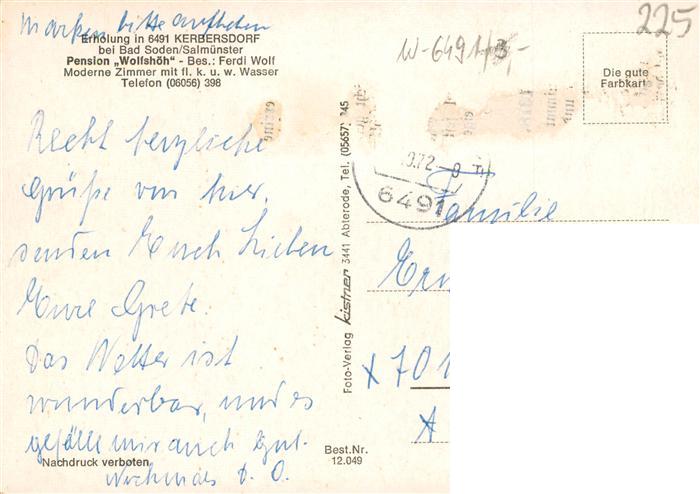 Marken bitte aufheben
Erholung in 6491 KERBERSDORF
bei Bad Soden/Salmünster
Pension „Wolfshöh" - Bes.: Ferdi Wolf
Moderne Zimmer mit fl. k. u. w. Wasser
Telefon (06056) 398
Recht herzliche
Grüße von hier,
senden Euch Lieben
Eure Grete.
Das Wetter ist
wunderbar, und es
gefällt mir auch gut.
Nochmals D. O.
Nachdruck verboten
Best.Nr.
12.049
Foto-Verlag kistner 3441 Abterode, Tel. (05657) 345
W-6491/3,-
225
Die gute
Farbkarte
.9.72.-8
6491
Familie
x 701
A